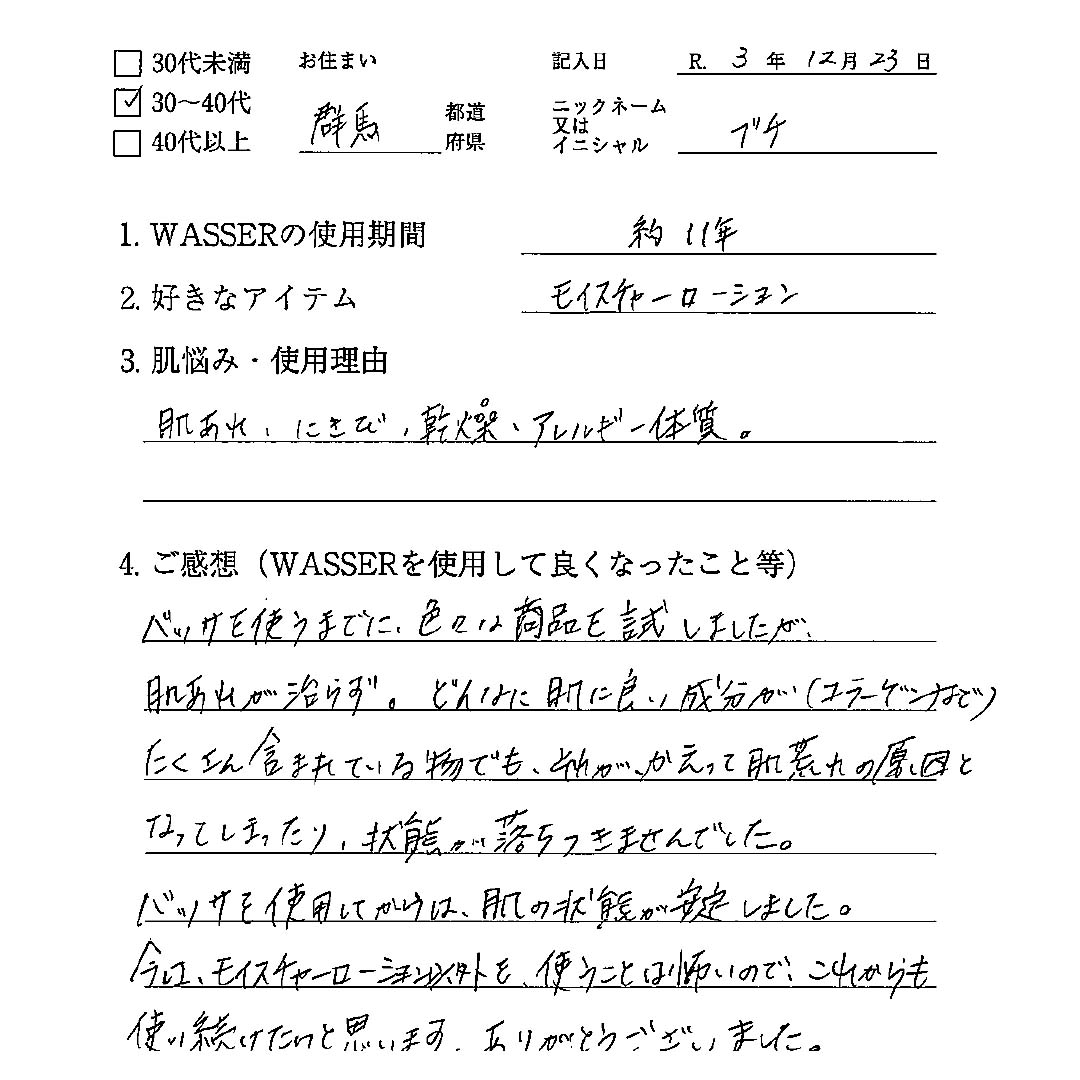 30代未満
お住まい
記入日 R. 3 年 12月 23 日
✓ 30〜40代
群馬 都道府県
ニックネーム又はイニシャル ブチ
40代以上
1. WASSERの使用期間 約 11年
2. 好きなアイテム モイスチャーローション
3. 肌悩み・使用理由
肌あれ、にきび、乾燥、アレルギー体質。
4. ご感想（WASSERを使用して良くなったこと等）
バッサを使うまでに、色々な商品を試しましたが、
肌あれが治らず。どんなに肌に良い成分が（コラーゲンなど）
たくさん含まれている物でも、それが、かえって肌荒れの原因と
なってしまったり、状態が落ちつきませんでした。
バッサを使用してからは、肌の状態が安定しました。
今は、モイスチャーローション以外を、使うことは怖いので、これからも
使い続けたいと思います。ありがとうございました。